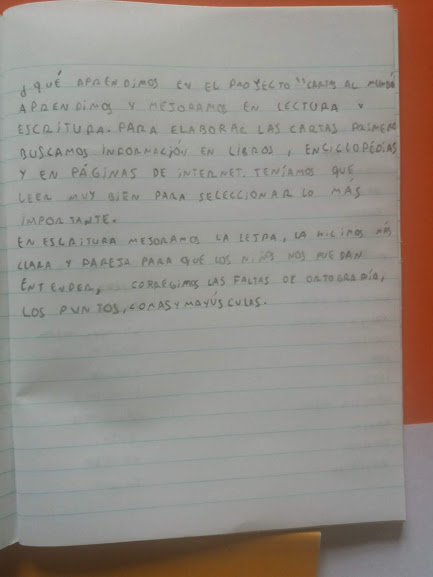 ¿QUÉ APRENDIMOS EN EL PROYECTO "CARTAS AL MUNDO
APRENDIMOS Y MEJORAMOS EN LECTURA Y
ESCRITURA. PARA ELABORAR LAS CARTAS PRIMERO
BUSCAMOS INFORMACIÓN EN LIBROS, ENCICLOPEDIAS
Y EN PÁGINAS DE INTERNET. TENÍAMOS QUÉ
LEER MUY BIEN PARA SELECCIONAR LO MÁS
IMPORTANTE.
EN ESCRITURA MEJORAMOS LA LETRA, LA HICIMOS MÁS
CLARA Y PAREJA PARA QUÉ LOS NIÑOS NOS PUEDAN
ENTENDER, CORREGIMOS LAS FALTAS DE ORTOGRAFÍA,
LOS PUNTOS, COMAS Y MAYÚSCULAS.